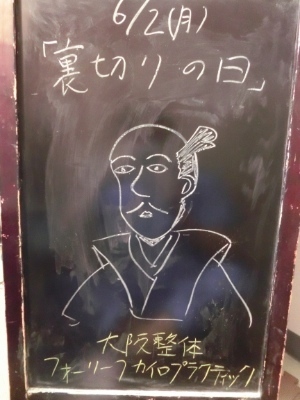 6/2(月)
「裏切りの日」
大阪整体
フォーリーフカイロプラクティック